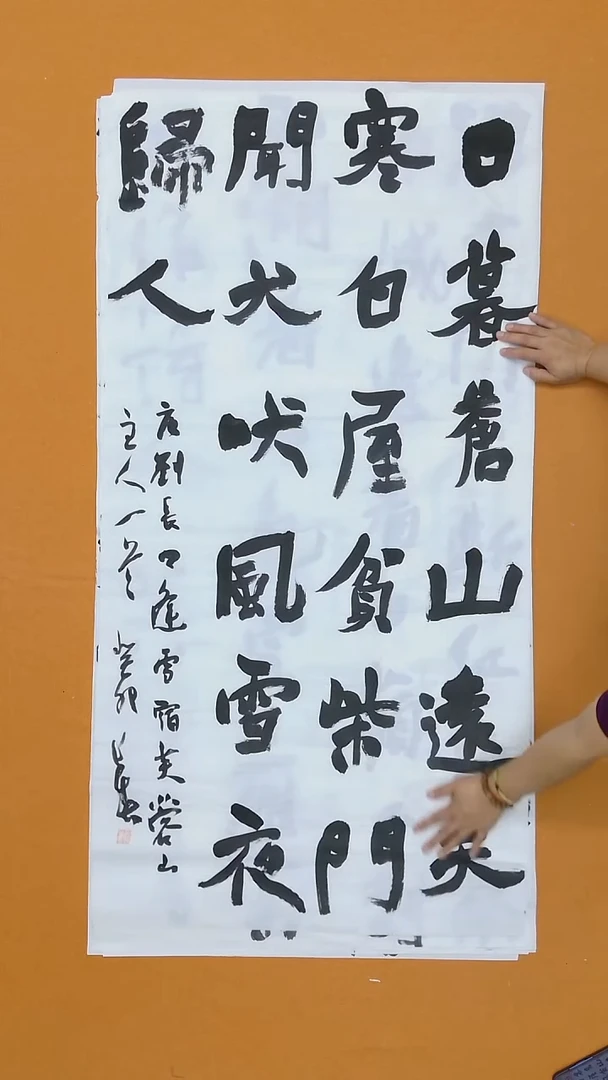 日暮蒼山遠天
寒白屋貧柴門
聞犬吠風雪夜
歸人
唐劉長卿逢雪宿芙蓉山
主人一首 癸卯